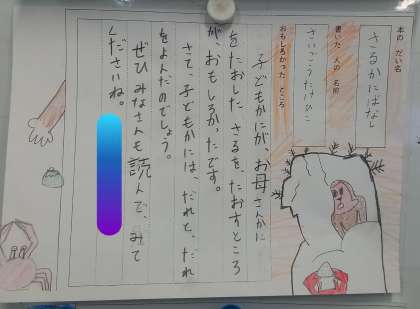 本の だい名
さるかにばなし
書いた 人の 名前
さいごうたけひこ
おもしろかった ところ
子どもかにが、お母さんかに
をたおした さるを、たおすところ
が、おもしろかったです。
さて、子どもかには、だれと、だれ
をよんだのでしょう。
ぜひ みなさんも 読んで、みて
くださいね。